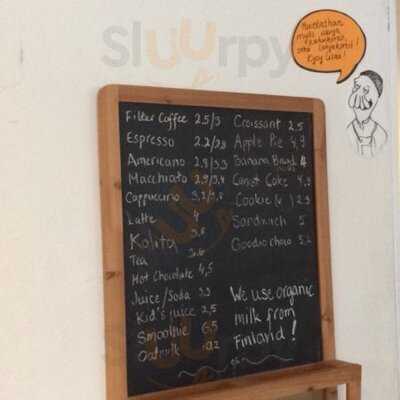 Slurpy
Filter Coffee 2.5/3
Espresso 2.2/2.8
Americano 2.8/3.3
Macchiato 2.9/3.4
Cappuccino 3.2/3.8
Latte 4
Kalita 3.8
Tea 3.6
Hot Chocolate 4,5
Juice/Soda 3.5
Kid's juice 2,5
Smoothie 6.5
Oatmilk +0.2
Croissant 2.5
Apple Pie 4,9
Banana Bread 4
Carrot Cake 4.9
Cookie 2.9
Sandwich 5
Goodio choco 5.2
We use organic
milk from
Finland!
myös